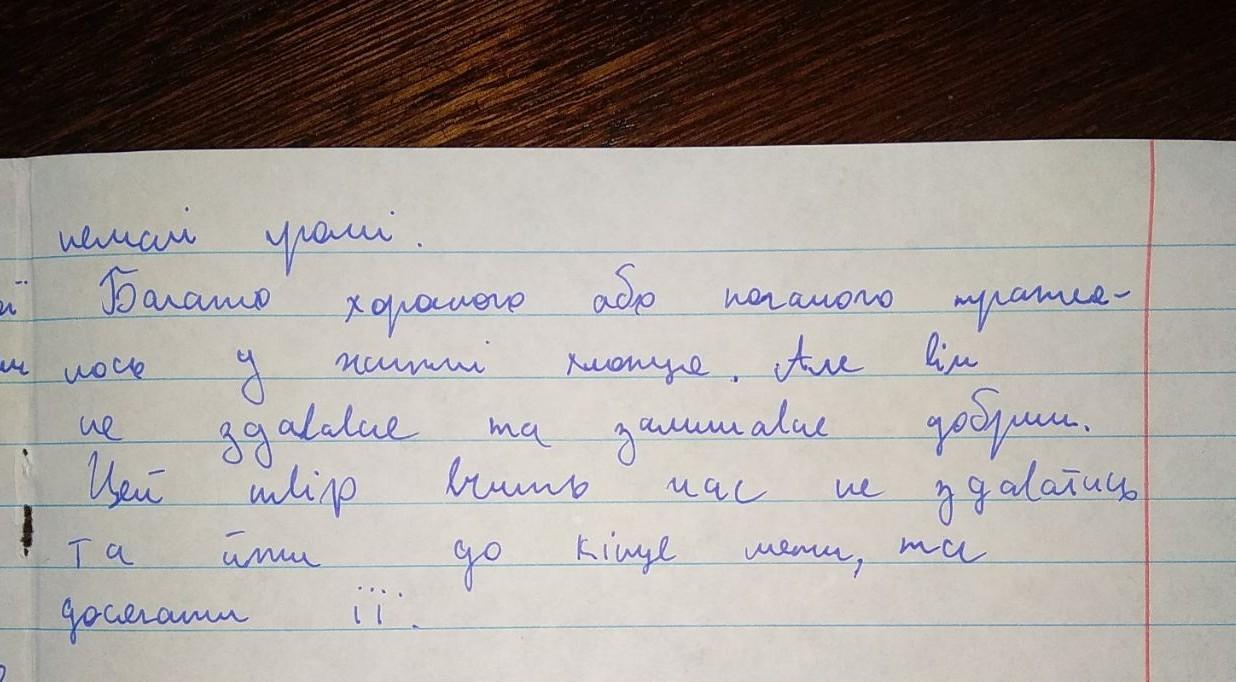 немалі гроші.
Багато хорошого або поганого трапля-
лося у житті хлопця. Але він
не здавався та залишався добрим.
Цей твір вчить нас не здаватись
та йти до кінця мети, та
досягати її.